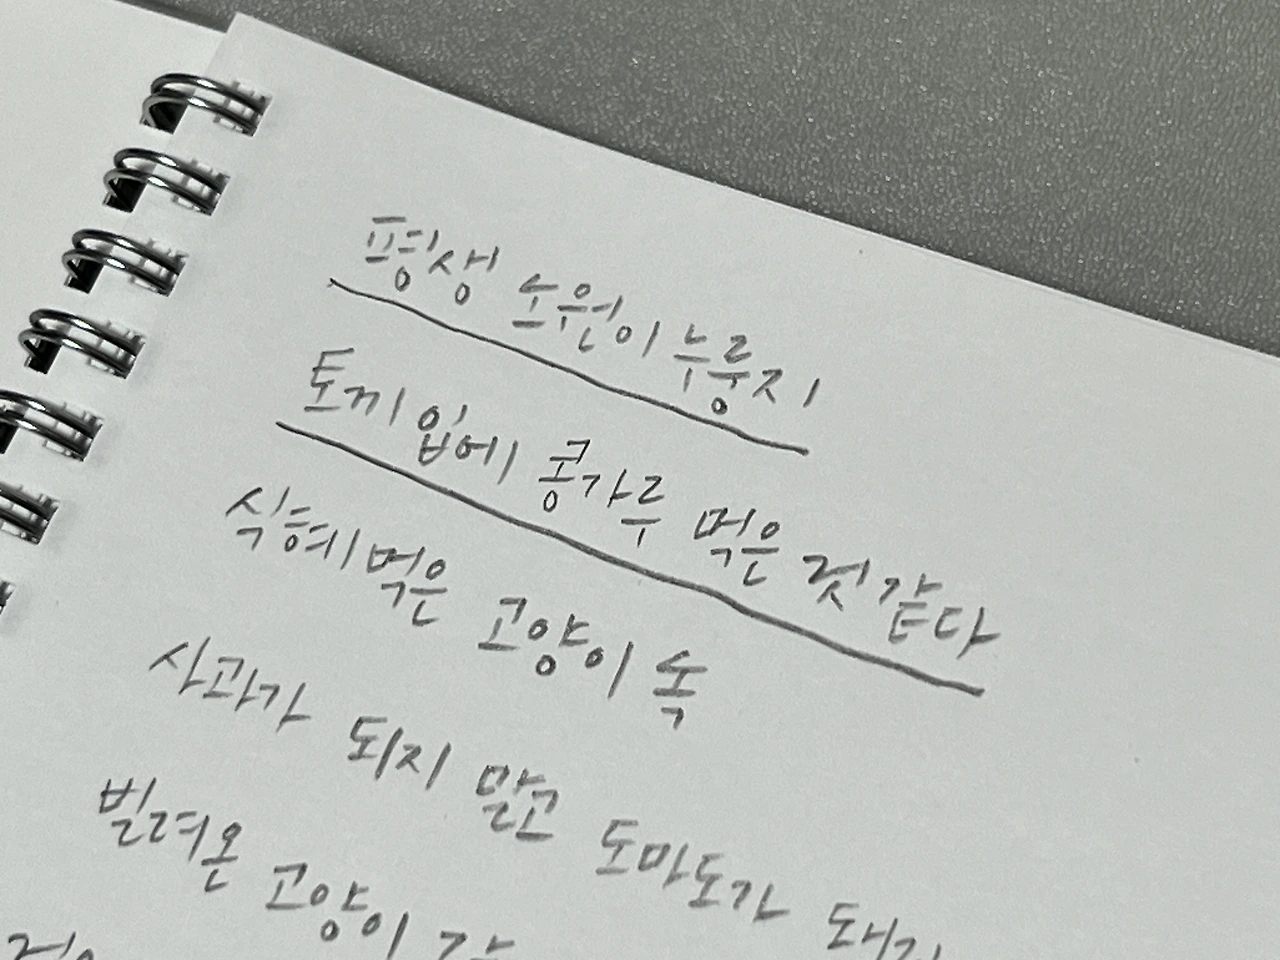 평생 소원이 누룽지
토끼 입에 콩가루 먹은 것 같다
식혜 먹은 고양이 속
사과가 되지 말고 도마도가
빌려온 고양이